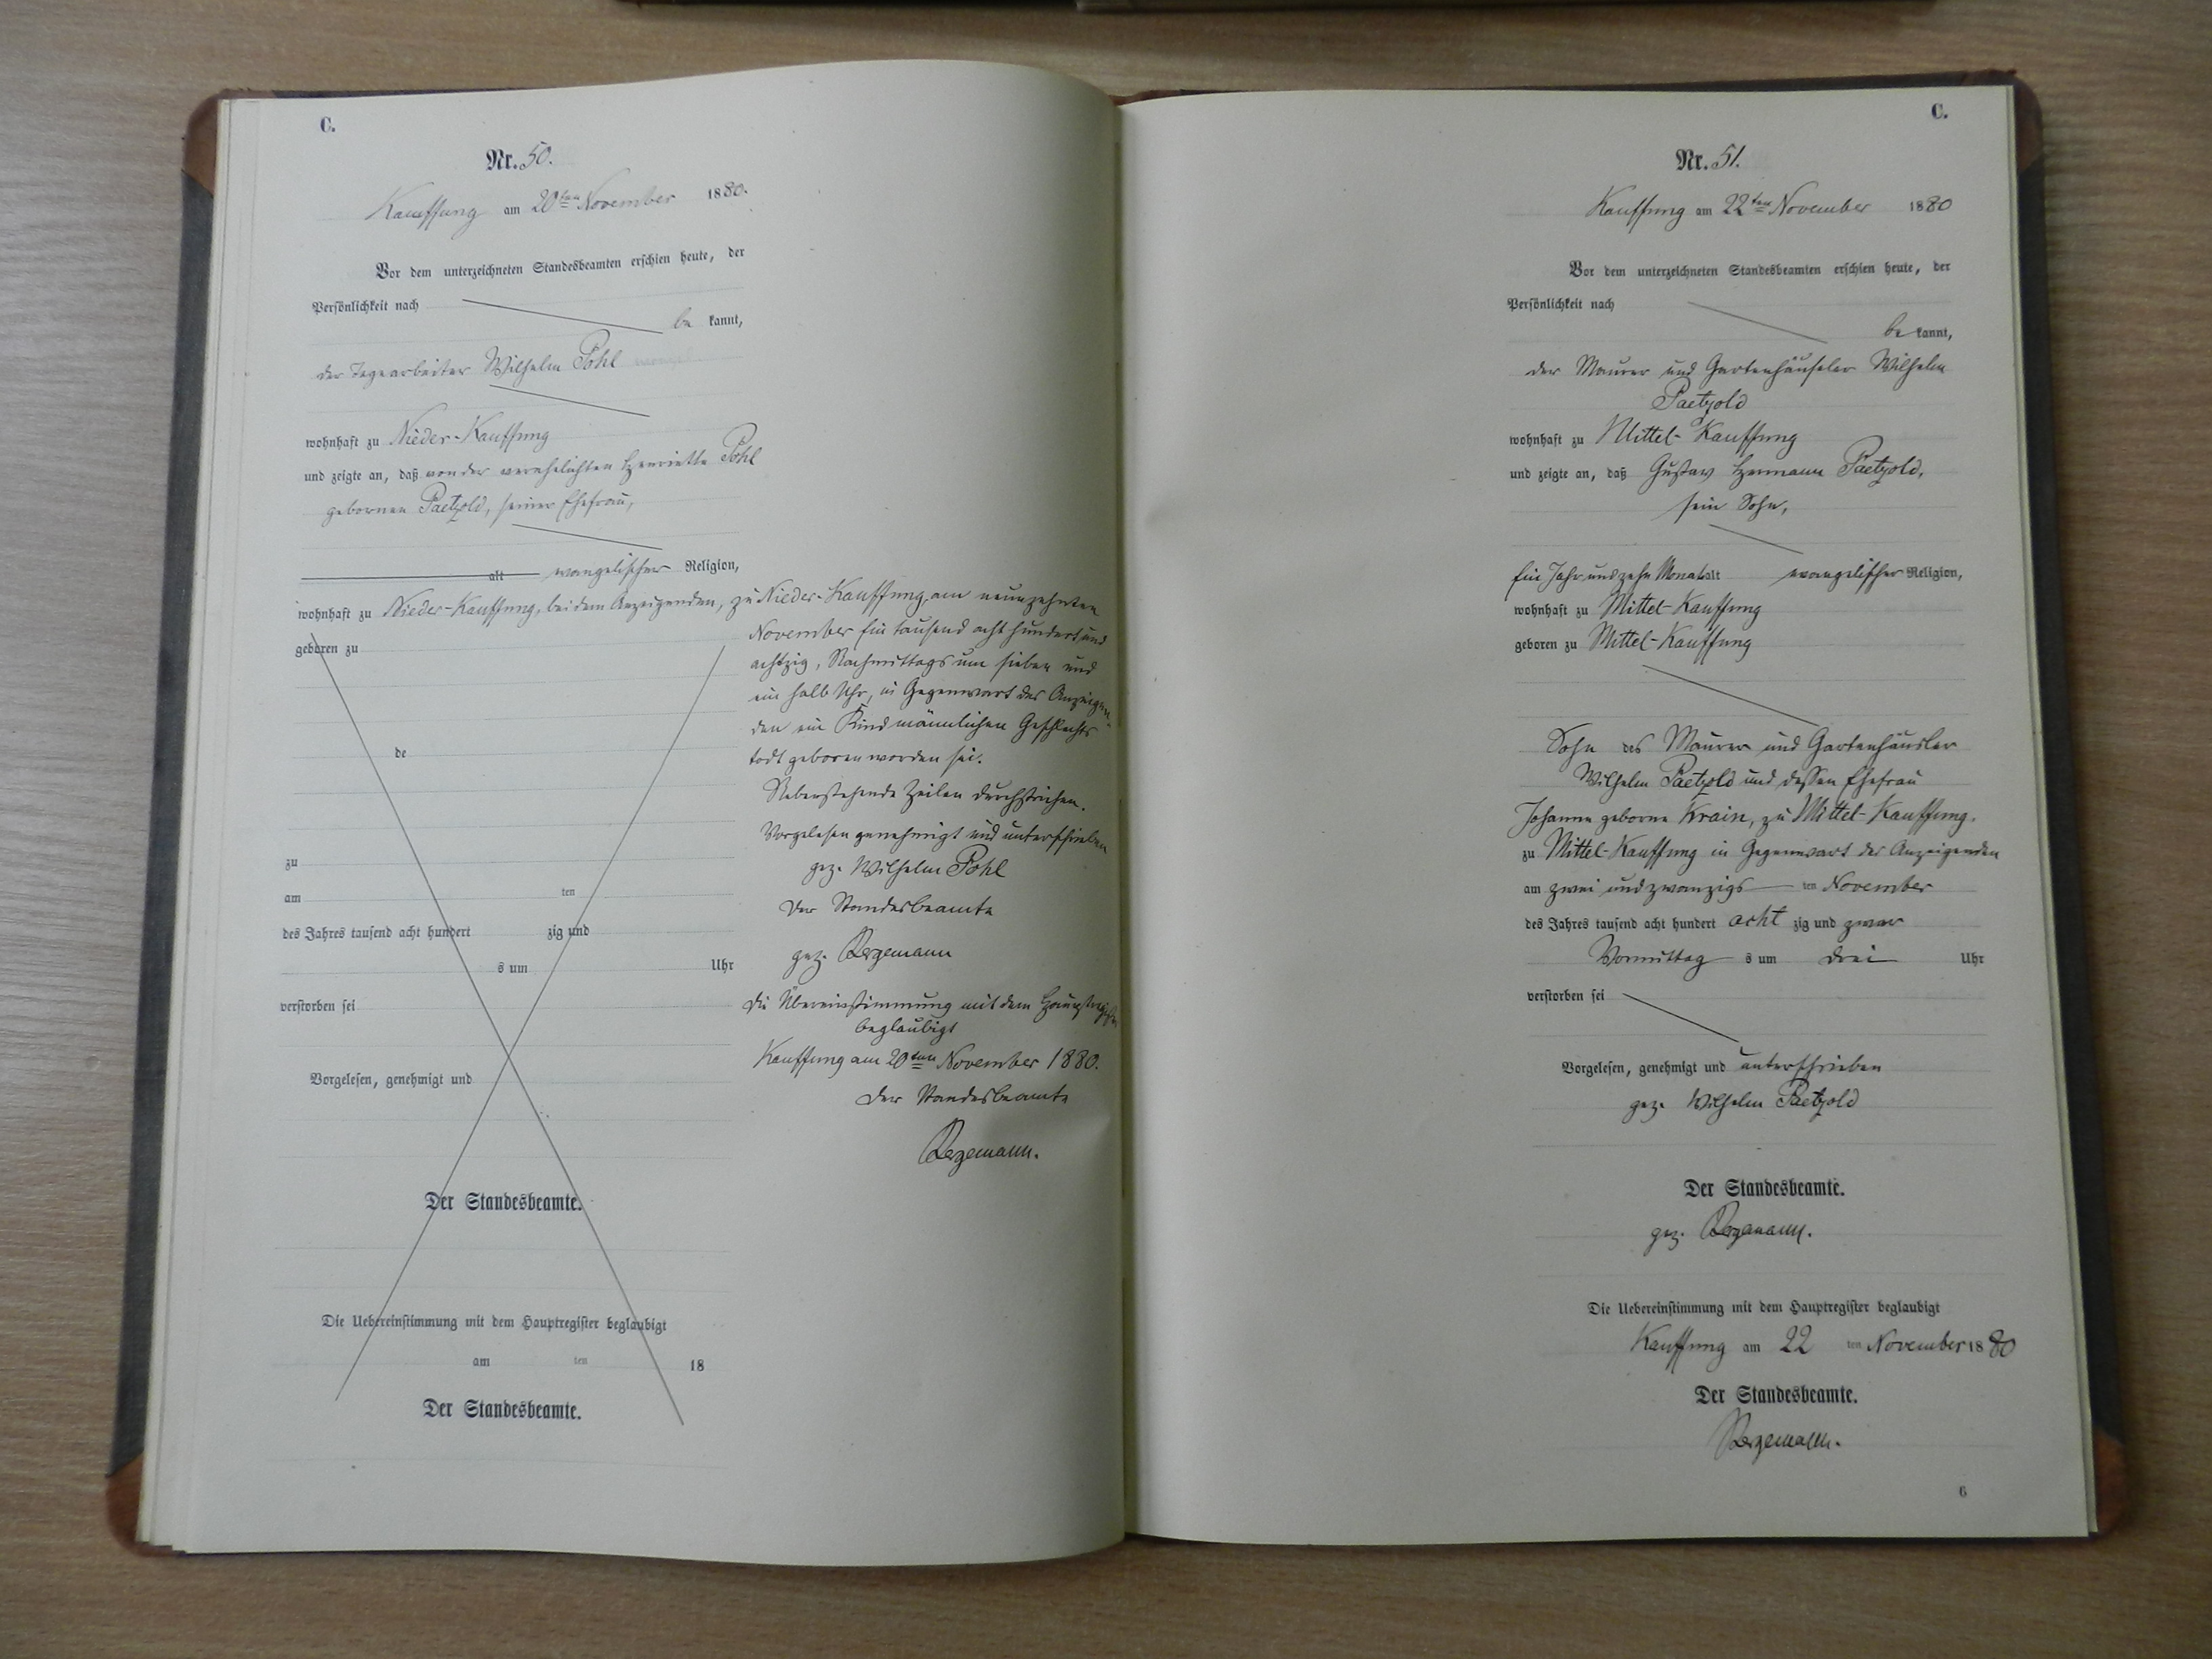 C.
Nr. 50.
Kauffung am 20ten November 1880.
Vor dem unterzeichneten Standesbeamten erschien heute, der
Persönlichkeit nach
be kannt,
der Tagearbeiter Wilhelm Pohl
wohnhaft zu Nieder-Kauffung
und zeigte an, daß von der verehelichten Henriette Pohl
gebornen Paetzold, seiner Ehefrau,
alt evangelischer Religion,
wohnhaft zu Nieder-Kauffung, bei dem Anzeigenden, zu Nieder-Kauffung, am neunzehnten
November Ein tausend acht hundert und
achtzig, Nachmittags um sieben und
ein halb Uhr, in Gegenwart des Anzeigen-
den ein Kind männlichen Geschlechts
todt geboren worden sei.
Nebenstehende Zeilen durchstrichen.
Vorgelesen genehmigt und unterschrieben
gez. Wilhelm Pohl
Der Standesbeamte
gez. Bergemann
Die Übereinstimmung mit dem Hauptregister
beglaubigt
Kauffung am 20ten November 1880.
Der Standesbeamte
Bergemann.
geboren zu
de
zu
am ten
des Jahres tausend acht hundert zig und
s um Uhr
verstorben sei
Vorgelesen, genehmigt und
Der Standesbeamte.
Die Uebereinstimmung mit dem Hauptregister beglaubigt
am ten 18
Der Standesbeamte.
C.
Nr. 51.
Kauffung am 22ten November 1880
Vor dem unterzeichneten Standesbeamten erschien heute, der
Persönlichkeit nach
be kannt,
der Maurer und Gartenhäusler Wilhelm
Paetzold
wohnhaft zu Mittel-Kauffung
und zeigte an, daß Gustav Hermann Paetzold,
sein Sohn,
Ein Jahr und zehn Monat alt evangelischer Religion,
wohnhaft zu Mittel-Kauffung
geboren zu Mittel-Kauffung
Sohn des Maurer und Gartenhäusler
Wilhelm Paetzold und dessen Ehefrau
Johanne geborne Krain, zu Mittel-Kauffung.
zu Mittel-Kauffung in Gegenwart des Anzeigenden
am zwei und zwanzigs ten November
des Jahres tausend acht hundert acht zig und zwar
Vormittag s um drei Uhr
verstorben sei
Vorgelesen, genehmigt und unterschrieben
gez. Wilhelm Paetzold
Der Standesbeamte.
gez. Bergemann.
Die Uebereinstimmung mit dem Hauptregister beglaubigt
Kauffung am 22 ten November 1880
Der Standesbeamte.
Bergemann.
6